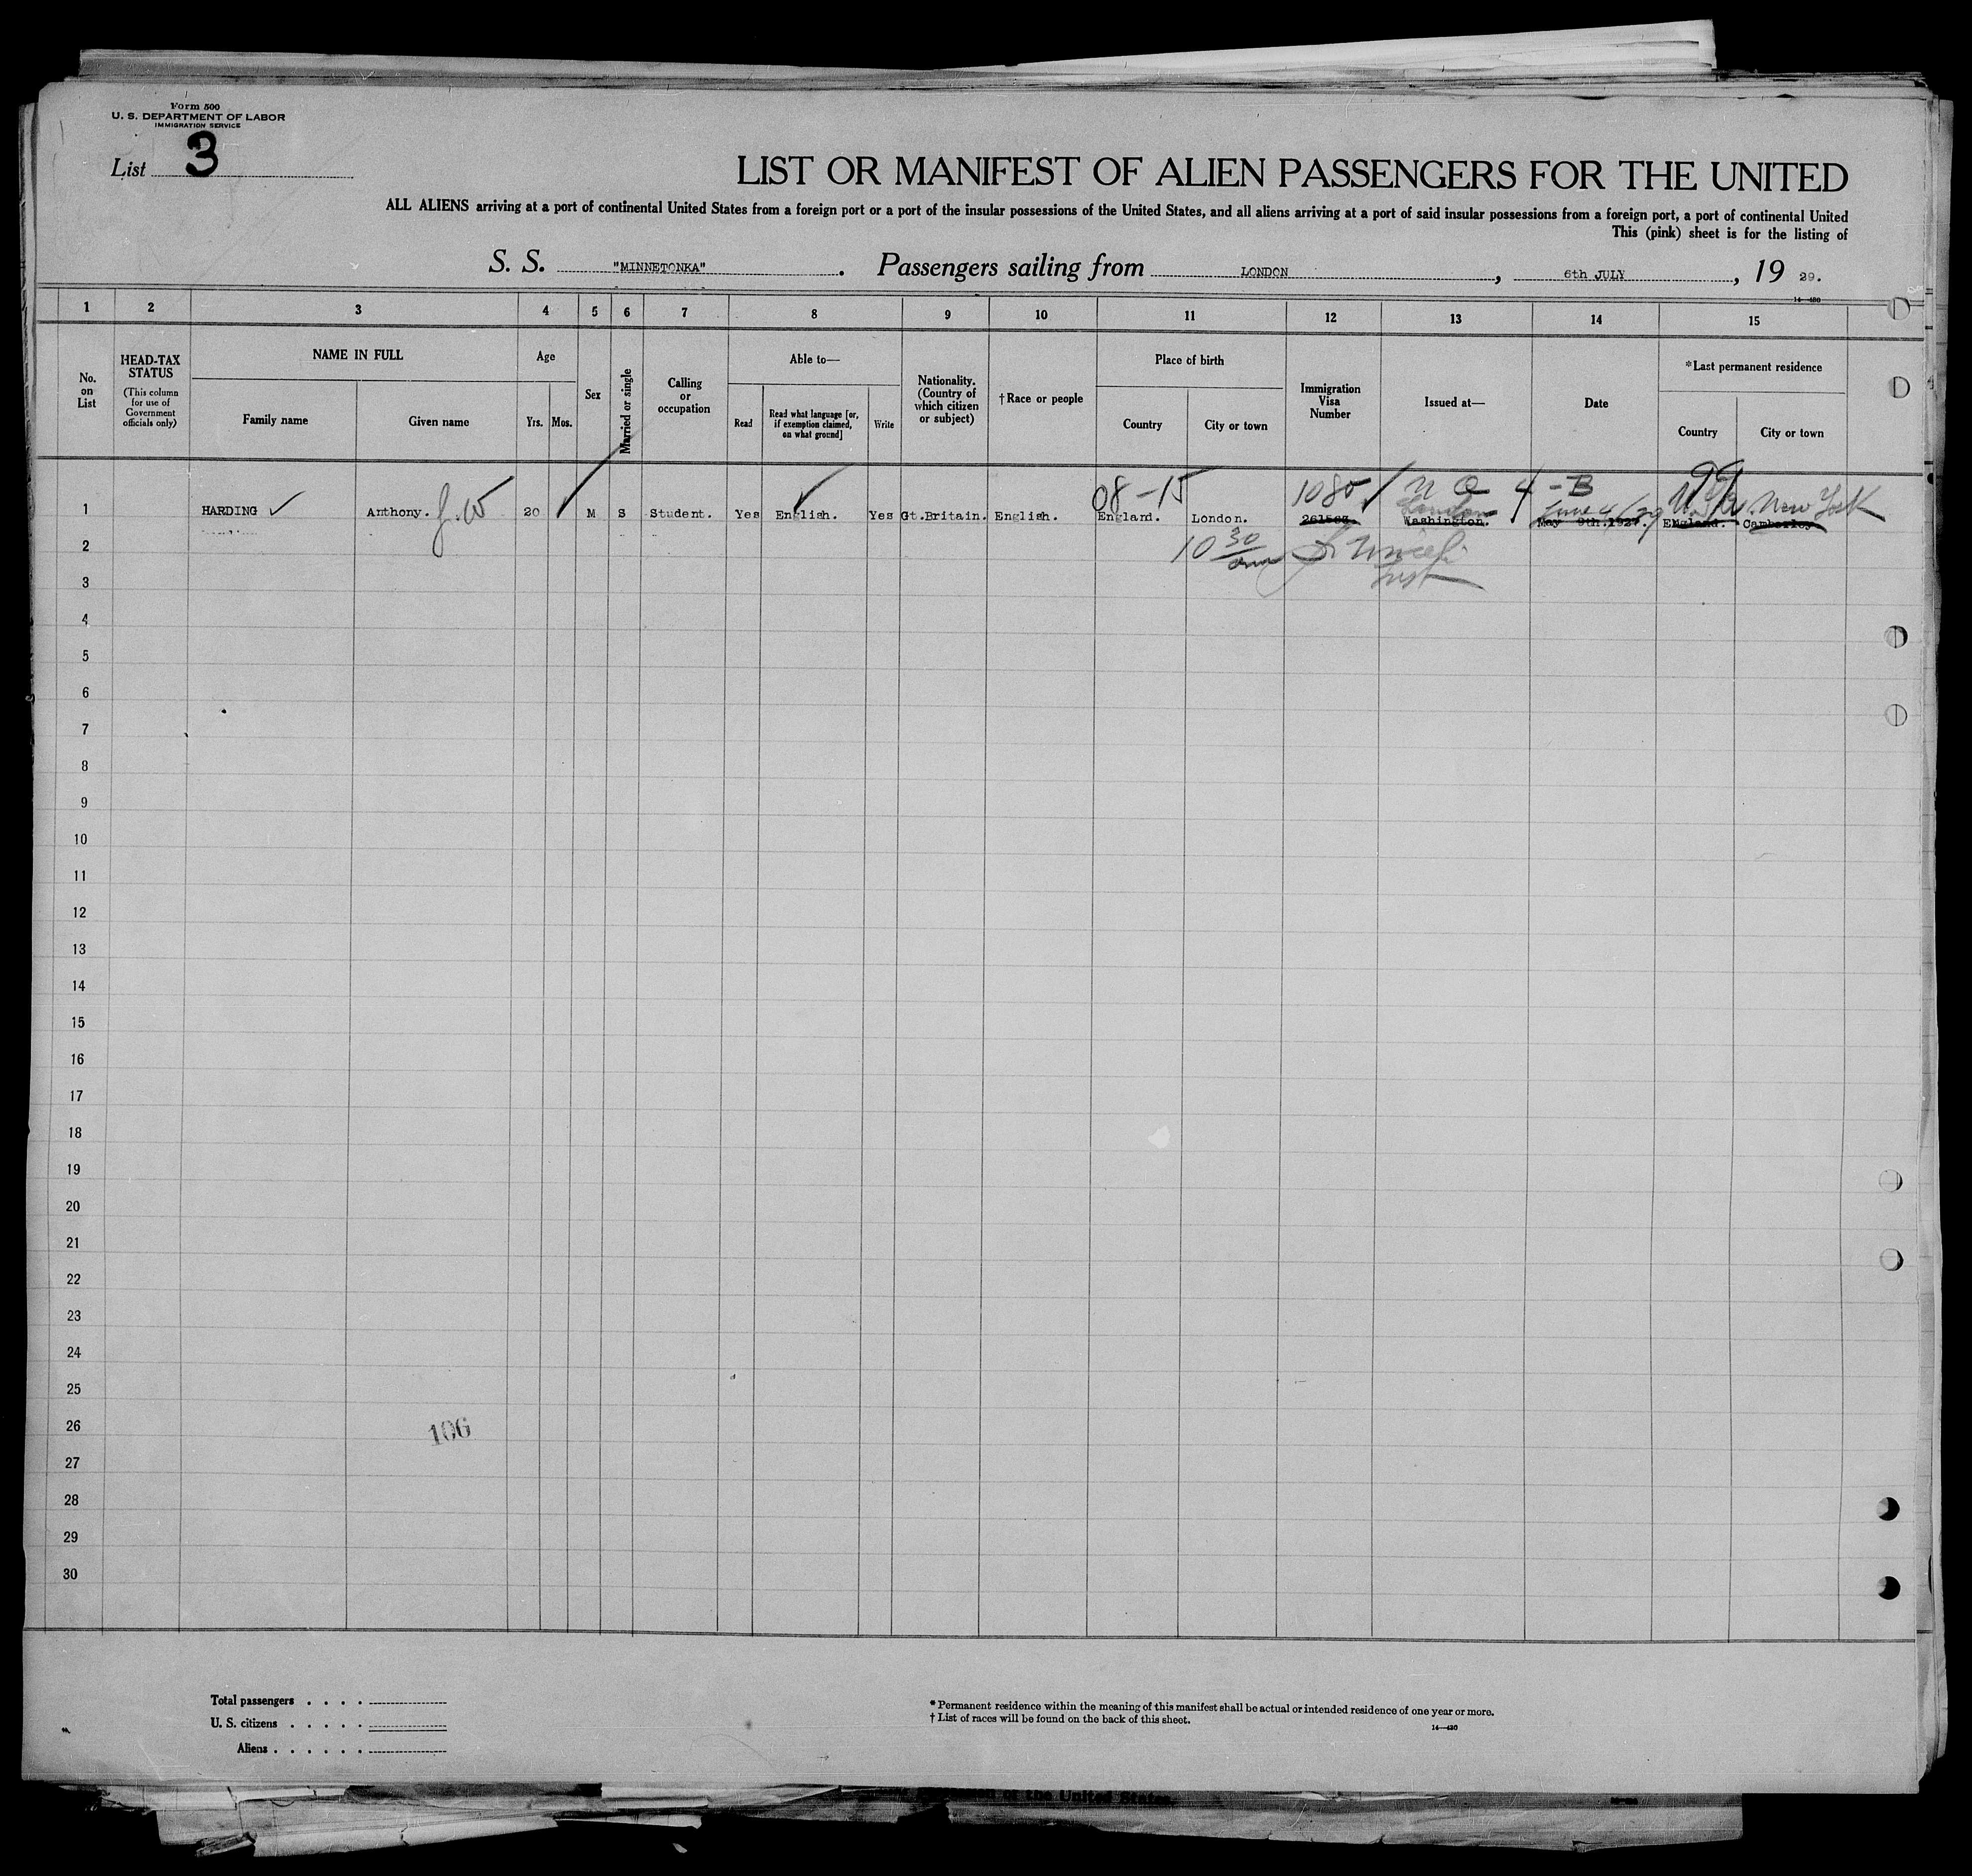 Form 500
U. S. DEPARTMENT OF LABOR
IMMIGRATION SERVICE
List 3
LIST OR MANIFEST OF ALIEN PASSENGERS FOR THE UNITED
ALL ALIENS arriving at a port of continental United States from a foreign port or a port of the insular possessions of the United States, and all aliens arriving at a port of said insular possessions from a foreign port, a port of continental United
This (pink) sheet is for the listing of
S. S. "MINNETONKA". Passengers sailing from LONDON, 6th JULY, 19 29.
14—430
1 2 3 4 5 6 7 8 9 10 11 12 13 14 15
No. on List
HEAD-TAX STATUS (This column for use of Government officials only)
NAME IN FULL
Family name Given name
Age
Yrs. Mos.
Sex
Married or single
Calling or occupation
Able to—
Read Read what language [or, if exemption claimed, on what ground] Write
Nationality. (Country of which citizen or subject)
†Race or people
Place of birth
Country City or town
Immigration Visa Number
Issued at—
Date
*Last permanent residence
Country City or town
08-15 1080 N Q 4 -B 99
London June 4/29 New York
1 HARDING Anthony. J.W 20 M S Student. Yes English. Yes Gt.Britain. English. England. London. Washington. May 9th.1927. England. Camberley
2 10 30
3
4
5
6
7
8
9
10
11
12
13
14
15
16
17
18
19
20
21
22
23
24
25
26
106
27
28
29
30
Total passengers . . . .
U. S. citizens . . . . .
Aliens . . . . . .
* Permanent residence within the meaning of this manifest shall be actual or intended residence of one year or more.
† List of races will be found on the back of this sheet.
14—430
of the United States